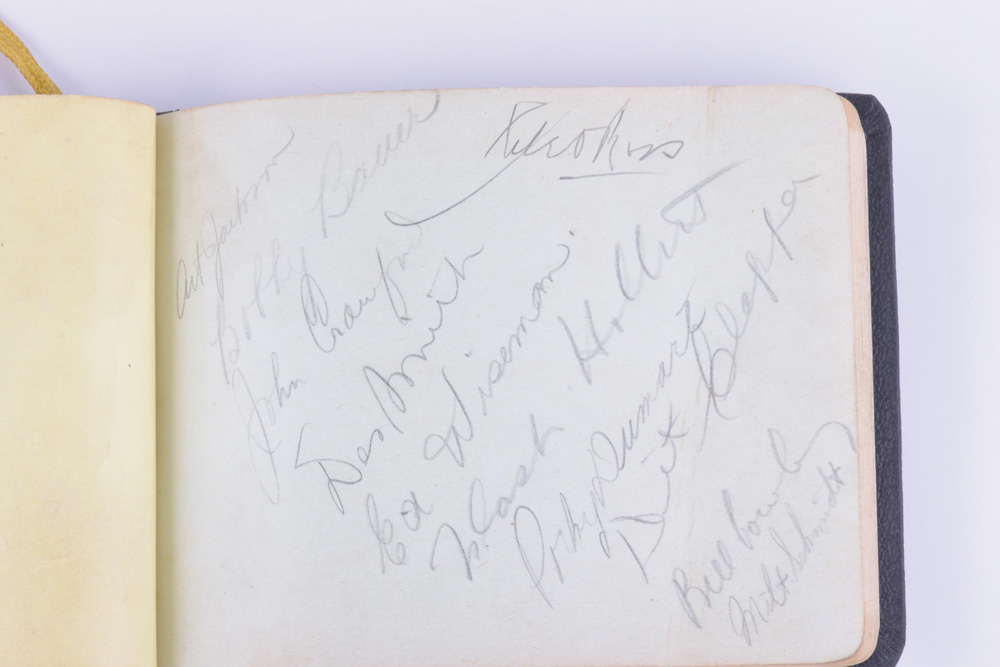 Art Jackson
Bobby Bauer
John Crawford
Des Smith
Ed Wiseman.
Flash Hollett
Porky Dumart
Dit Clapper
Bill Cowley
Milt Schmidt
Ross